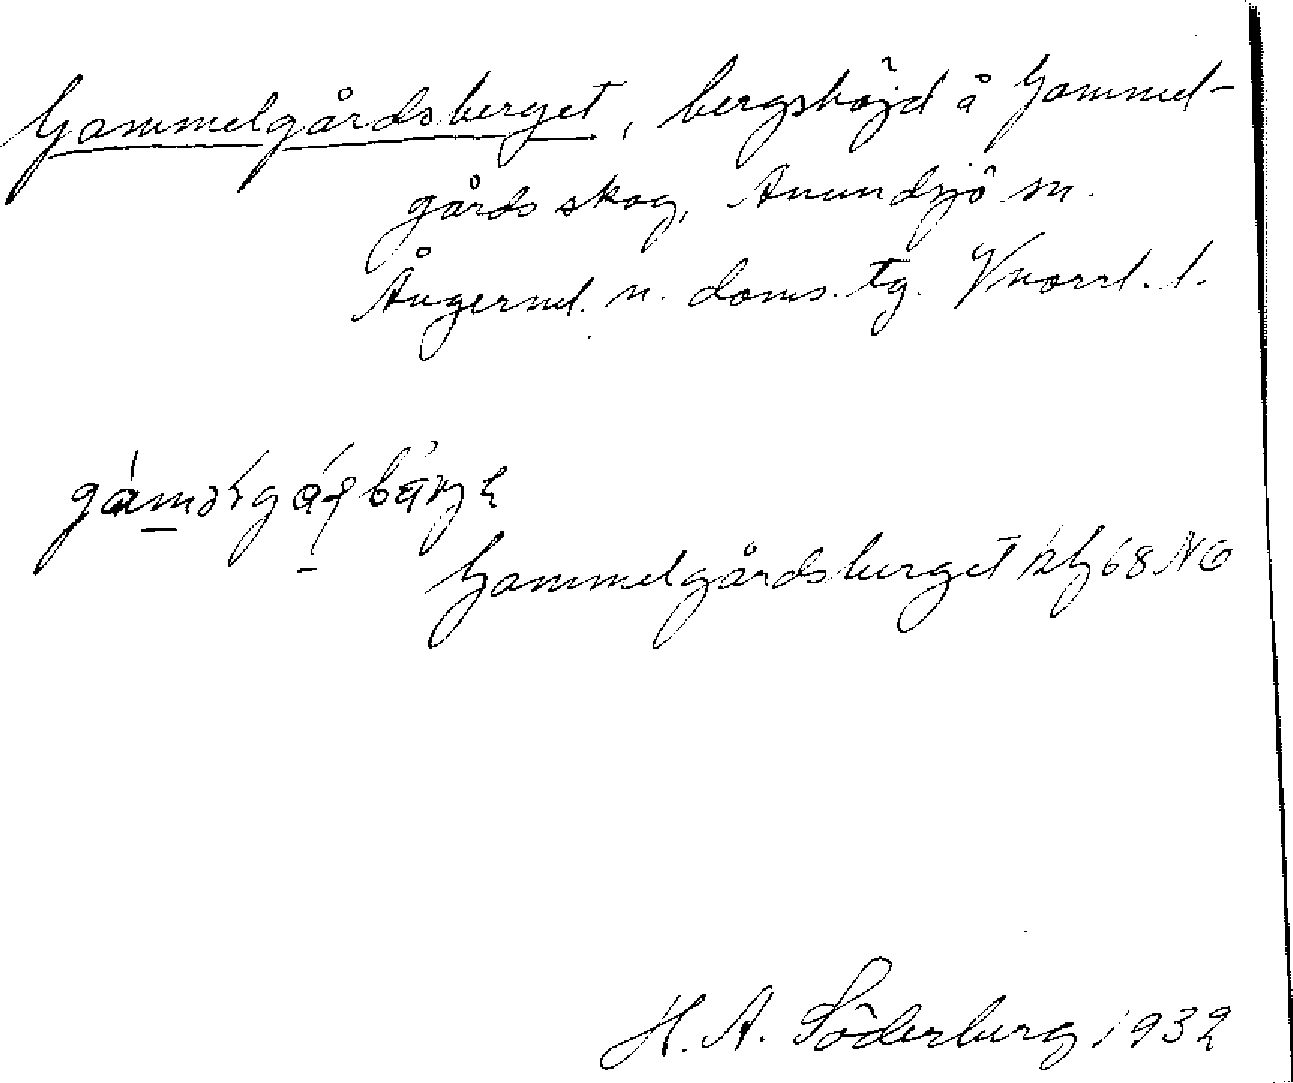 Gammelgårdsberget, bergshöjd å Gammel-
gårds skog, Anundsjö sn.
Ångerml. n. doms. tg. Vnorrl. l.
Gammelgårdsberget kbl 68 NO
H. A. Söderberg 1932